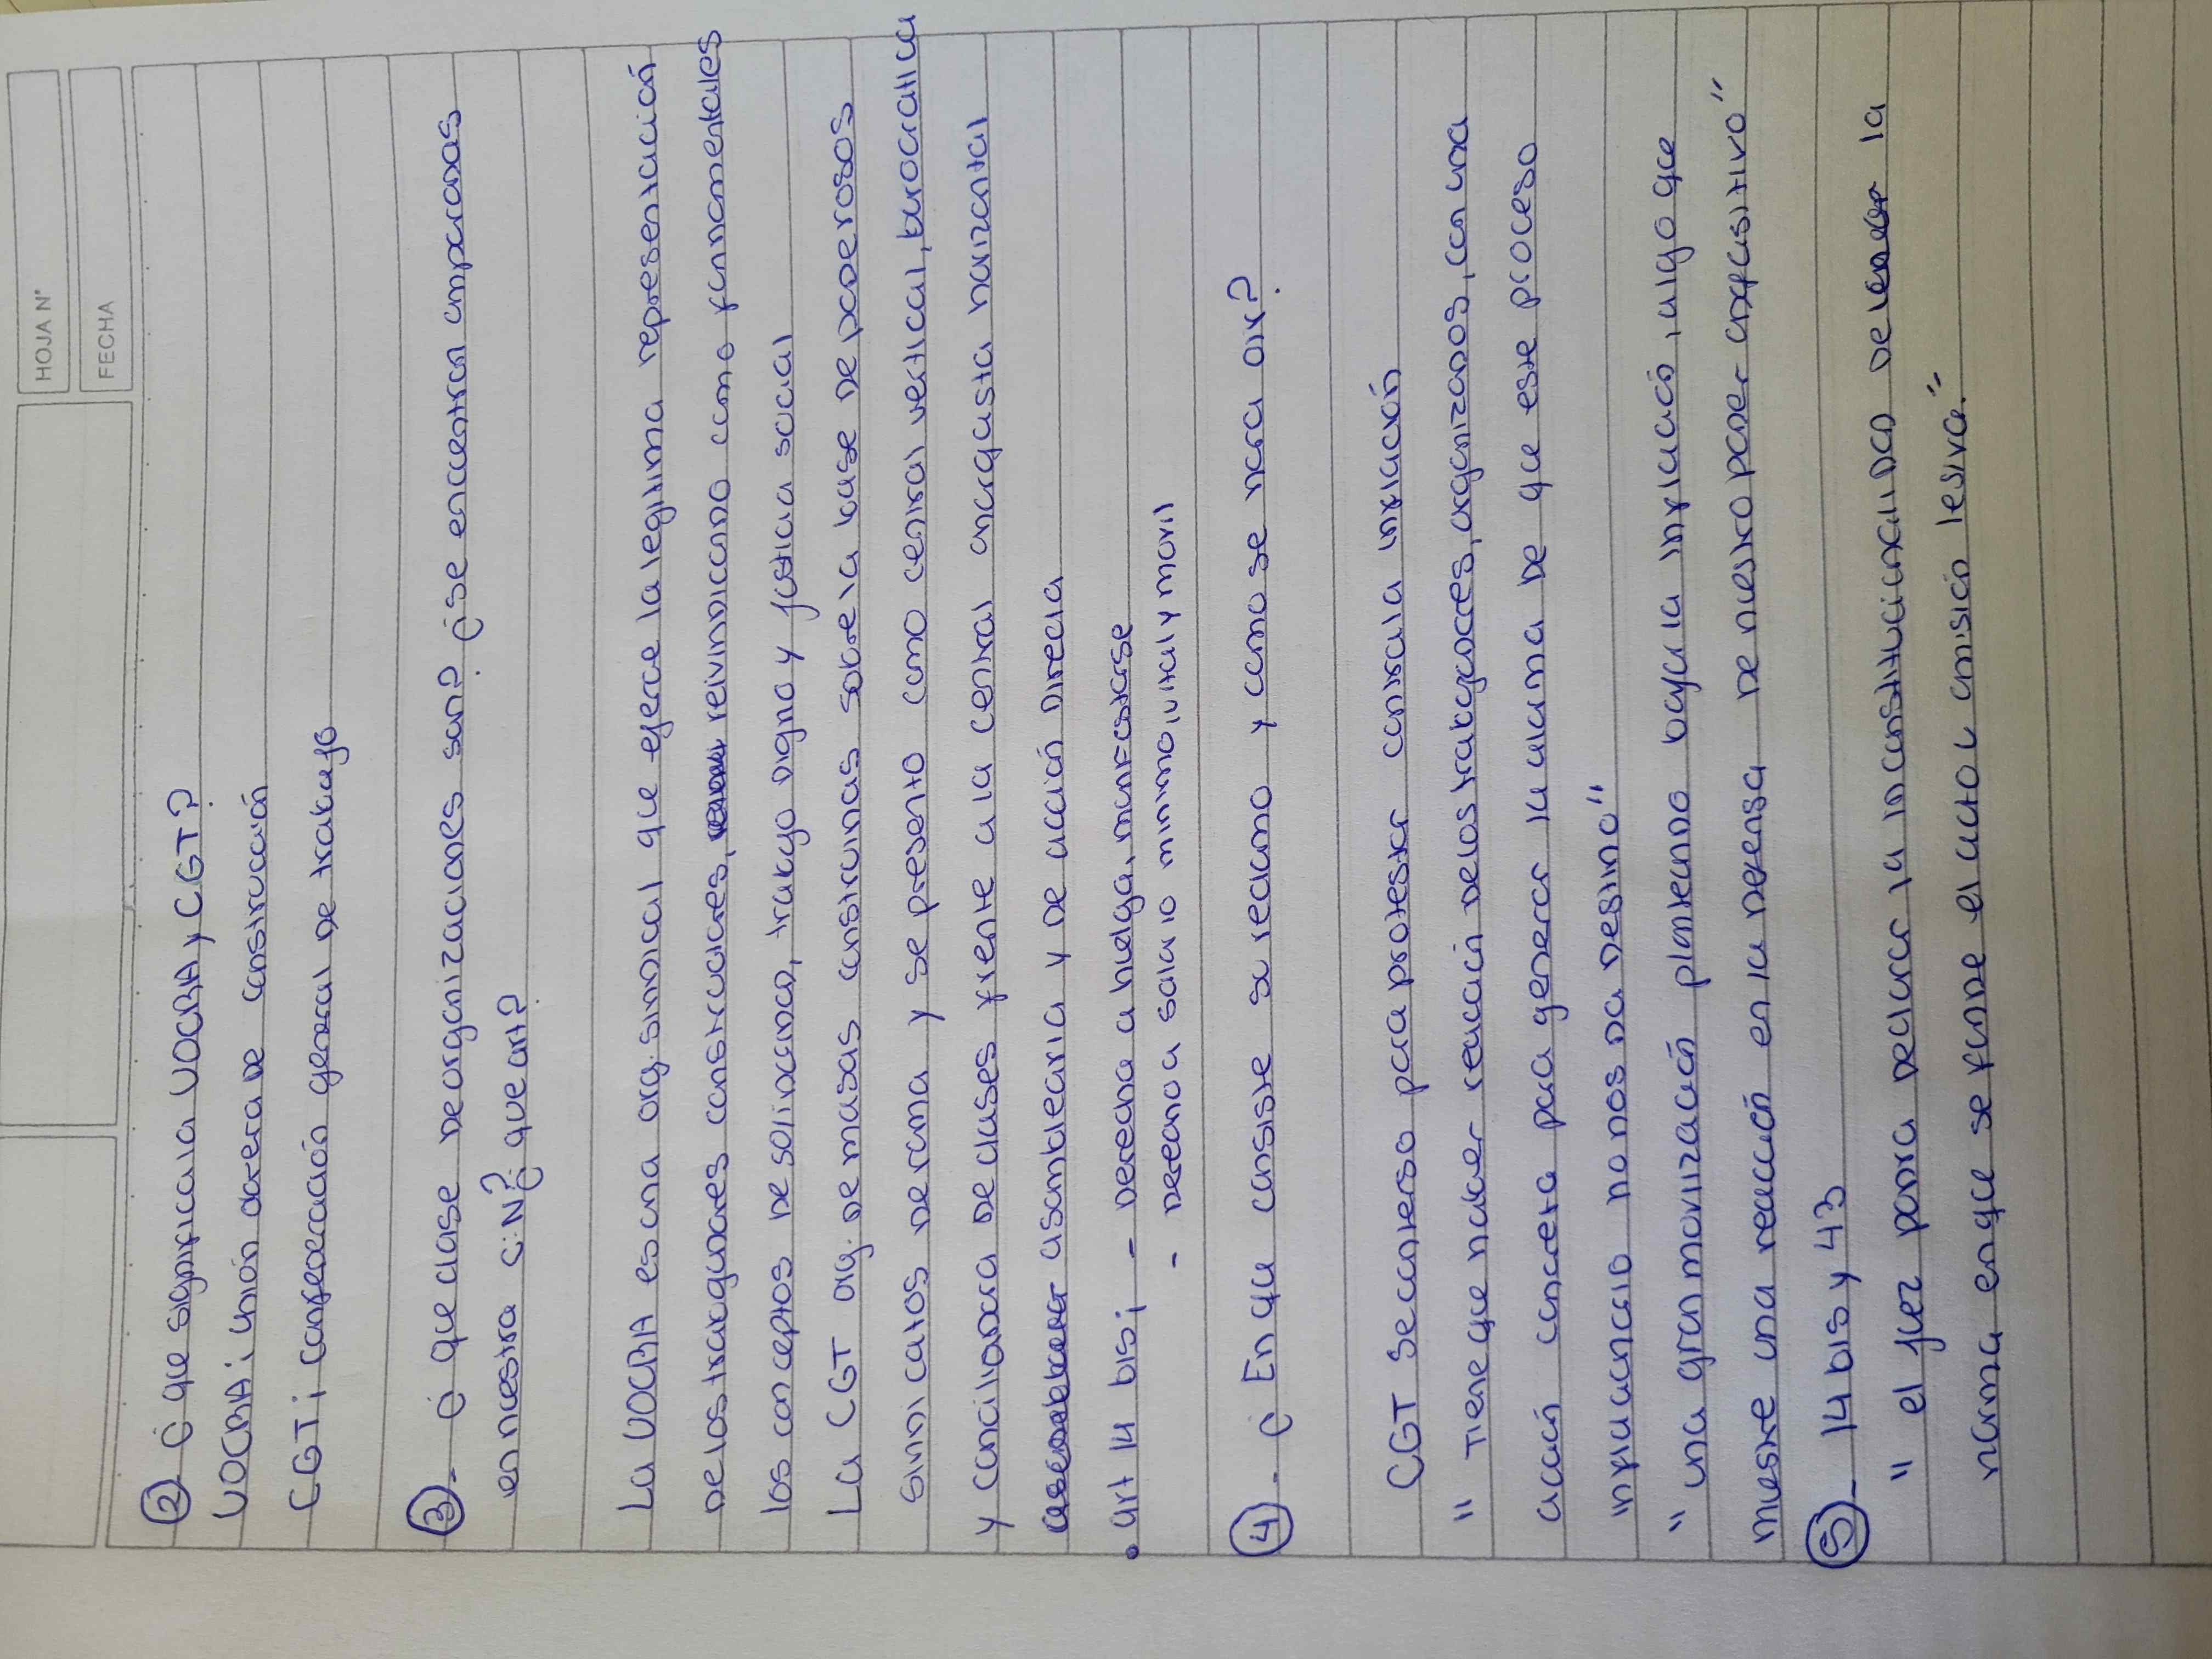 HOJA N°
FECHA
② ¿ que significa la UOCRA y CGT?
UOCRA: Unión obrera de construcción
CGT: confederación general de trabajo
③- ¿ que clase de organizaciones son? ¿se encuentran amparadas
en nuestra C.N? ¿ que art?
La UOCRA es una org. sindical que ejerce la legitima representación
de los trabajadores constructores, reivindicando como fundamentales
los conceptos de solidaridad, trabajo digno y justicia social
La CGT org. de masas construidas sobre la base de poderosos
sindicatos de rama y se presentó como central vertical, burocratica
y conciliadora de clases frente a la central anarquista horizontal
asamblearia y de acción directa
• art 14 bis: - Derecho a huelga, manifestarse
- Derecho a salario minimo, vital y movil
④- ¿ En que consiste su reclamo y como se hará oir?
CGT se convierso para protestar contra la inflación
" Tiene que haber reacción de los trabajadores, organizados, con una
acción concreta para generar la alarma de que este proceso
inflacionario no nos da destino"
" una gran movilización planteando baja la inflación, algo que
muestre una reacción en la defensa de nuestro poder adquisitivo"
⑤- 14 bis y 43
" el juez podrá declarar la inconstitucionalidad de la
norma en que se funde el acto u omisión lesiva."